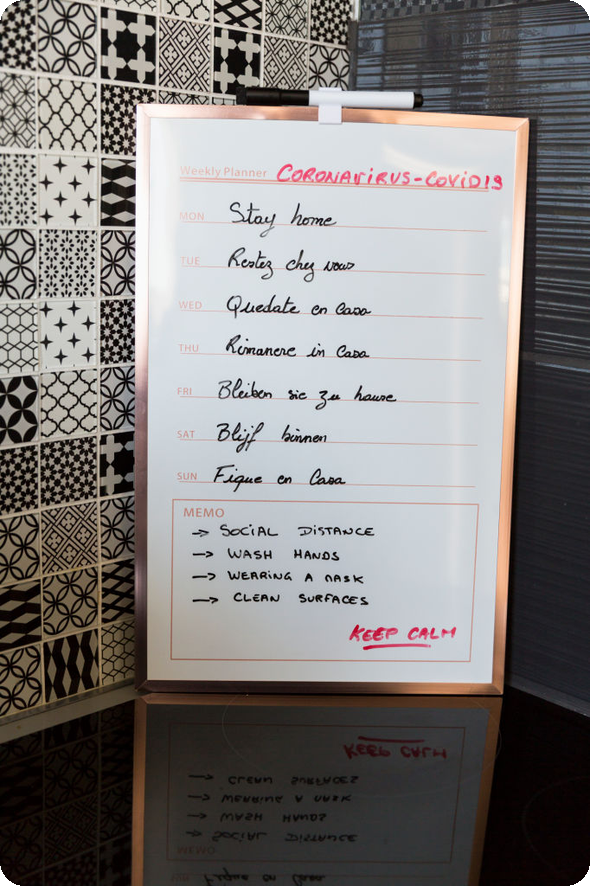 Weekly Planner CORONAVIRUS-COVID19
MON Stay home
TUE Restez chez vous
WED Quedate en Casa
THU Rimanere in Casa
FRI Bleiben sie zu hause
SAT Blijf binnen
SUN Fique en Casa
MEMO
→ SOCIAL DISTANCE
→ WASH HANDS
→ WEARING A MASK
→ CLEAN SURFACES
KEEP CALM